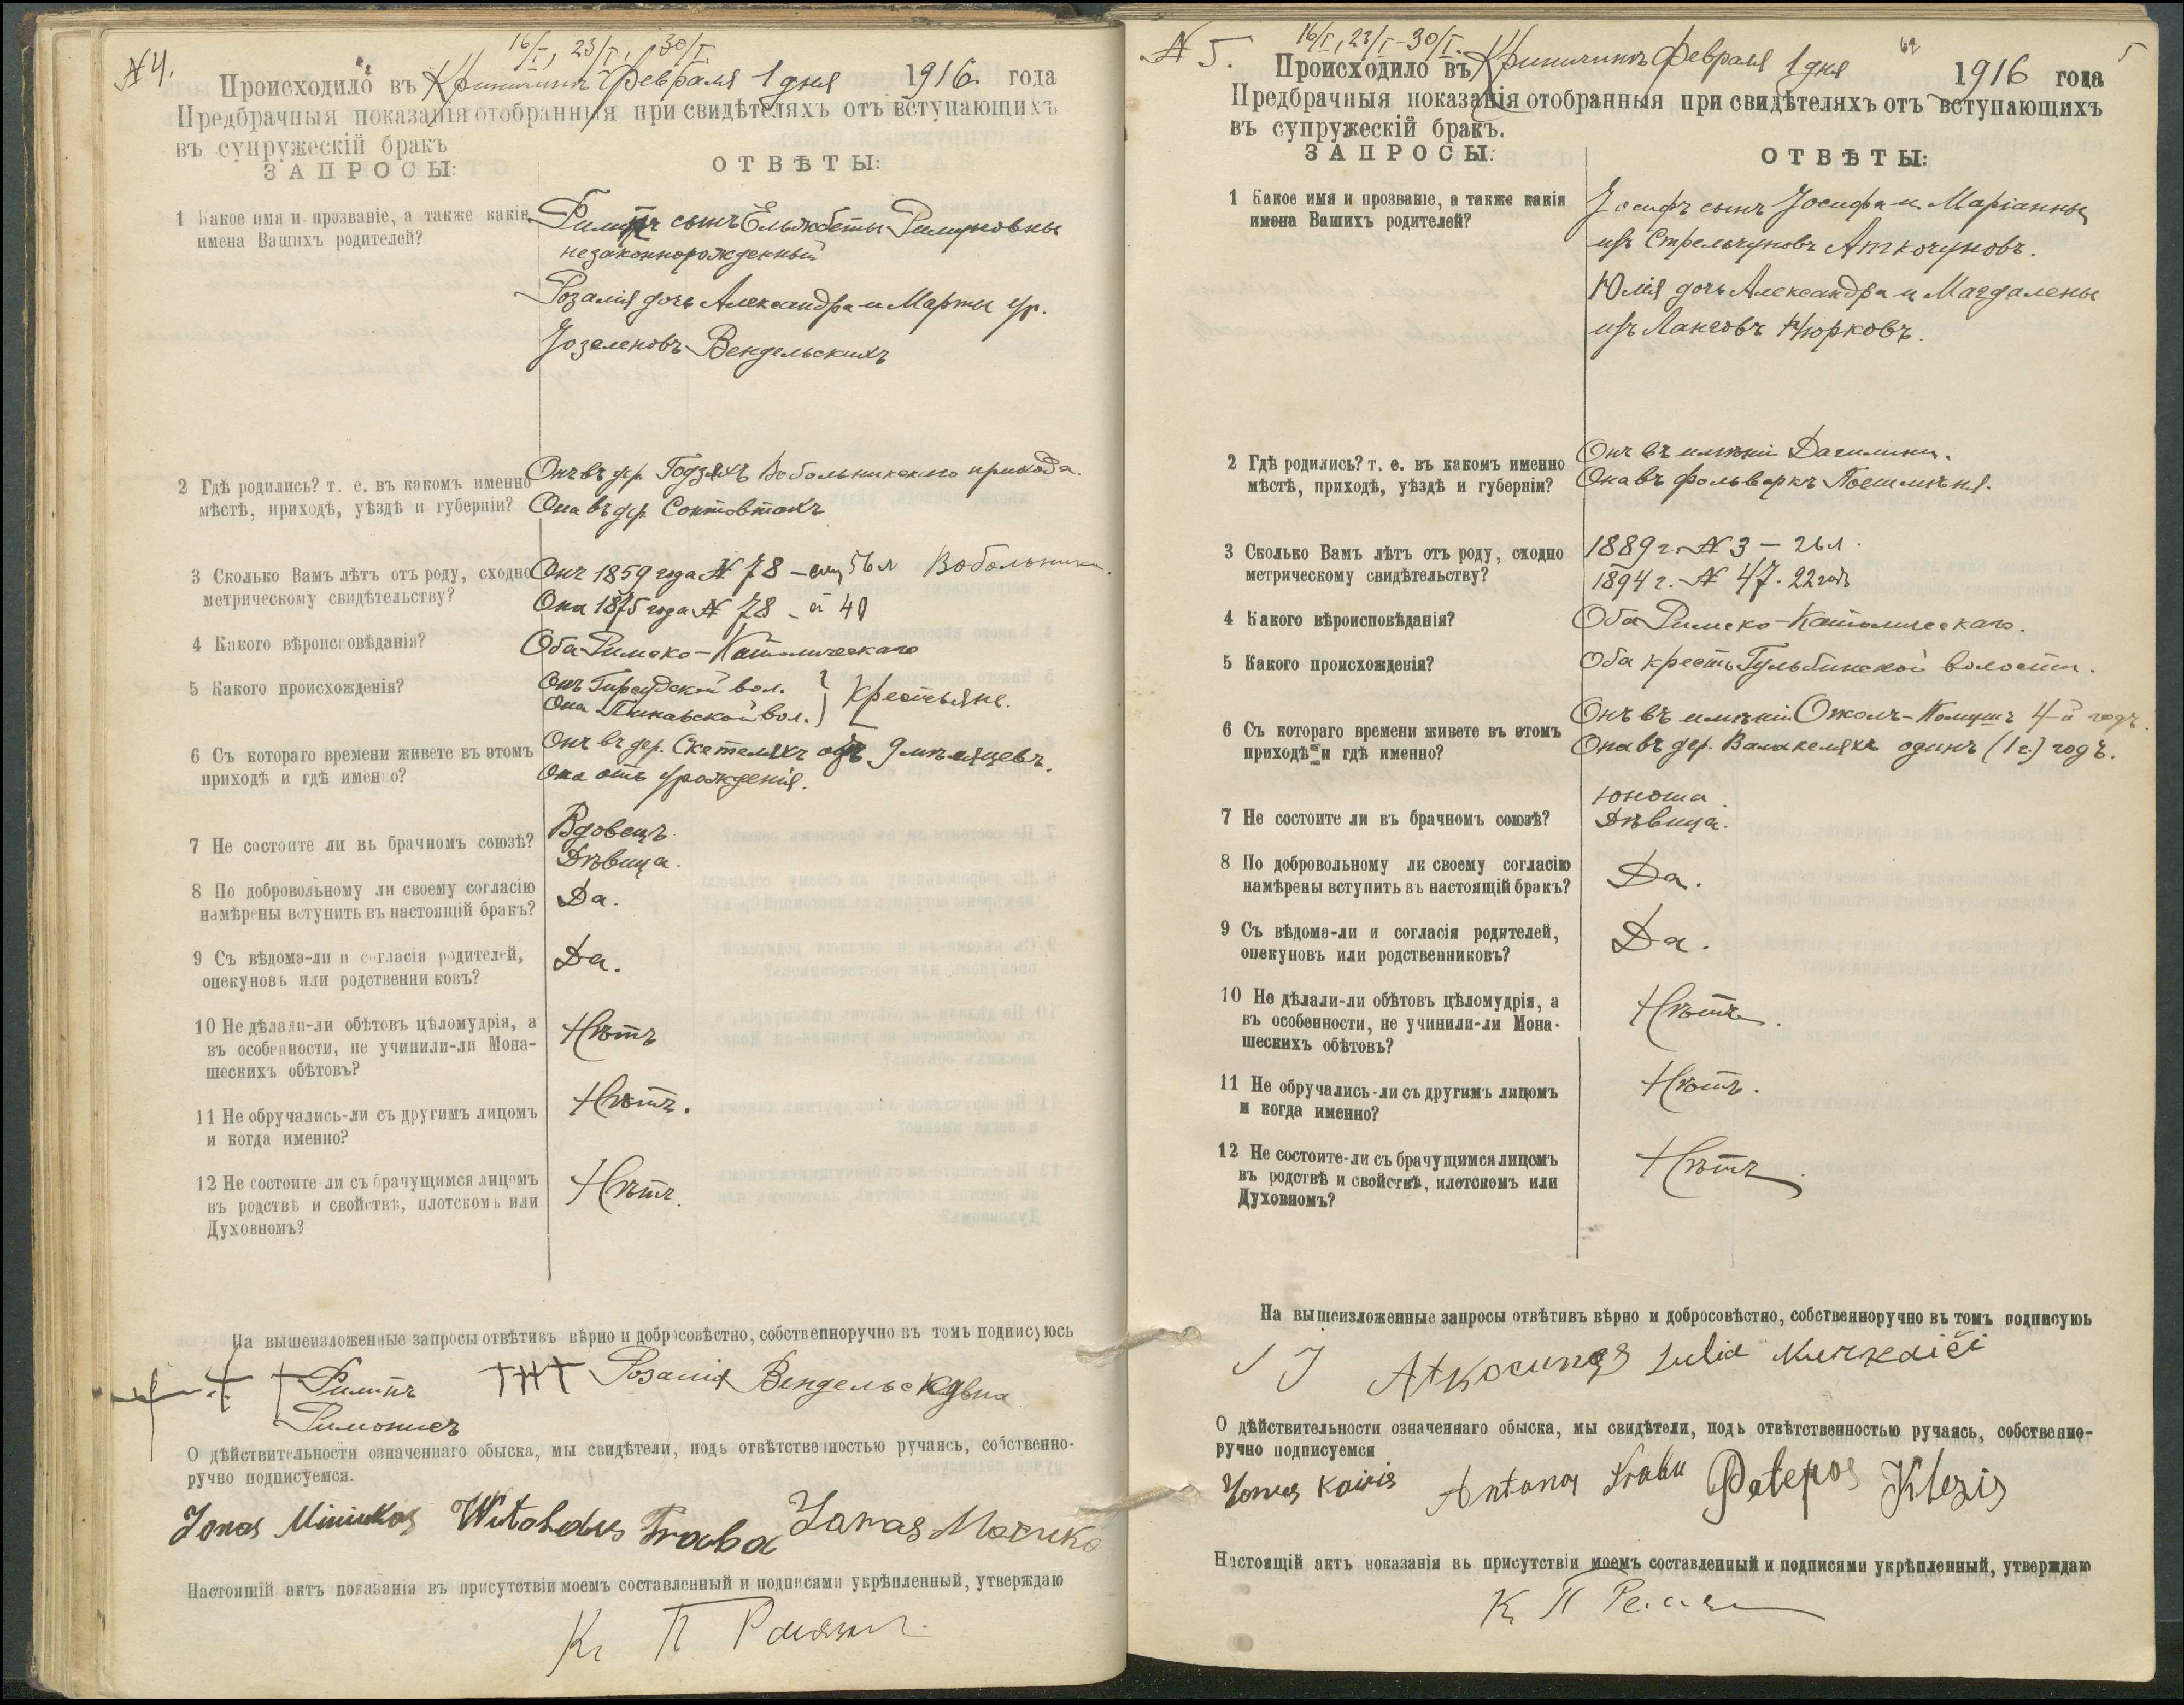 № 4.
16/I, 23/I, 30/I.
Происходило въ Криничинъ Февраля 1 дня 1916. года
Предбрачныя показанія отобранныя при свидѣтеляхъ отъ вступающихъ
въ супружескій бракъ
ЗАПРОСЫ: ОТВѢТЫ:
1 Какое имя и прозваніе, а также какія
имена Вашихъ родителей?
сынъ Ельжбеты
незаконнорожденный
Розалія дочь Александра и Марты ур.
Вендельскихъ
2 Гдѣ родились? т. е. въ какомъ именно
мѣстѣ, приходѣ, уѣздѣ и губерніи?
Онъ въ дер. Вобольникскаго прихода.
Она въ дер.
3 Сколько Вамъ лѣтъ отъ роду, сходно
метрическому свидѣтельству?
Онъ 1859 года № 78 – 56 л Вобольники.
Она 1875 года № 78 – 40
4 Какого вѣроисповѣданія?
Оба Римско-Католическаго
5 Какого происхожденія?
Онъ Гирсудской вол.
Она вол. } крестьяне.
6 Съ котораго времени живете въ этомъ
приходѣ и гдѣ именно?
Онъ въ дер. Скателяхъ 9 мѣсяцевъ.
Она отъ урожденія.
7 Не состоите ли въ брачномъ союзѣ?
Вдовецъ
Дѣвица.
8 По добровольному ли своему согласію
намѣрены вступить въ настоящій бракъ?
Да.
9 Съ вѣдома-ли и согласія родителей,
опекуновъ или родственни ковъ?
Да.
10 Не дѣлали-ли обѣтовъ цѣломудрія, а
въ особенности, не учинили-ли Мона-
шескихъ обѣтовъ?
Нѣтъ
11 Не обручались-ли съ другимъ лицомъ
и когда именно?
Нѣтъ.
12 Не состоите-ли съ брачущимся лицомъ
въ родствѣ и свойствѣ, плотскомъ или
Духовномъ?
Нѣтъ.
На вышеизложенные запросы отвѣтивъ вѣрно и добросовѣстно, собственноручно въ томъ подписуюсь
Розалія
О дѣйствительности означеннаго обыска, мы свидѣтели, подъ отвѣтственностью ручаясь, собственно-
ручно подписуемся.
Jonas Witoldus Traba Janas
Настоящій актъ показанія въ присутствіи моемъ составленный и подписями укрѣпленный, утверждаю
№ 5.
16/I, 23/I - 30/I.
5
Происходило въ Криничинъ Февраля 1 дня 1916 года
Предбрачныя показанія отобранныя при свидѣтеляхъ отъ вступающихъ
въ супружескій бракъ.
ЗАПРОСЫ: ОТВѢТЫ:
1 Какое имя и прозваніе, а также какія
имена Вашихъ родителей?
Іосифъ сынъ Іосифа и Маріанны
изъ Стрельчуновъ Аткочуновъ.
Юлія дочь Александра и Магдалены
изъ Ланговъ
2 Гдѣ родились? т. е. въ какомъ именно
мѣстѣ, приходѣ, уѣздѣ и губерніи?
Онъ въ имѣніи Дагилини.
Она въ фольваркѣ
3 Сколько Вамъ лѣтъ отъ роду, сходно
метрическому свидѣтельству?
1889 г. № 3 – 26 л.
1894 г. № 47. 22 годъ
4 Какого вѣроисповѣданія?
Оба Римско-Католическаго.
5 Какого происхожденія?
Оба крестъ Гульбинской волости.
6 Съ котораго времени живете въ этомъ
приходѣ и гдѣ именно?
Онъ въ имѣніи 4-й годъ.
Она въ дер. Валакеляхъ одинъ (1 г.) годъ.
7 Не состоите ли въ брачномъ союзѣ?
юноша
Дѣвица.
8 По добровольному ли своему согласію
намѣрены вступить въ настоящій бракъ?
Да.
9 Съ вѣдома-ли и согласія родителей,
опекуновъ или родственниковъ?
Да.
10 Не дѣлали-ли обѣтовъ цѣломудрія, а
въ особенности, не учинили-ли Мона-
шескихъ обѣтовъ?
Нѣтъ.
11 Не обручались-ли съ другимъ лицомъ
и когда именно?
Нѣтъ.
12 Не состоите-ли съ брачущимся лицомъ
въ родствѣ и свойствѣ, плотскомъ или
Духовномъ?
Нѣтъ.
На вышеизложенные запросы отвѣтивъ вѣрно и добросовѣстно, собственноручно въ томъ подписуюь
J Atkocunas
О дѣйствительности означеннаго обыска, мы свидѣтели, подъ отвѣтственностью ручаясь, собственно-
ручно подписуемся
Antanas
Настоящій актъ показанія въ присутствіи моемъ составленный и подписями укрѣпленный, утверждаю